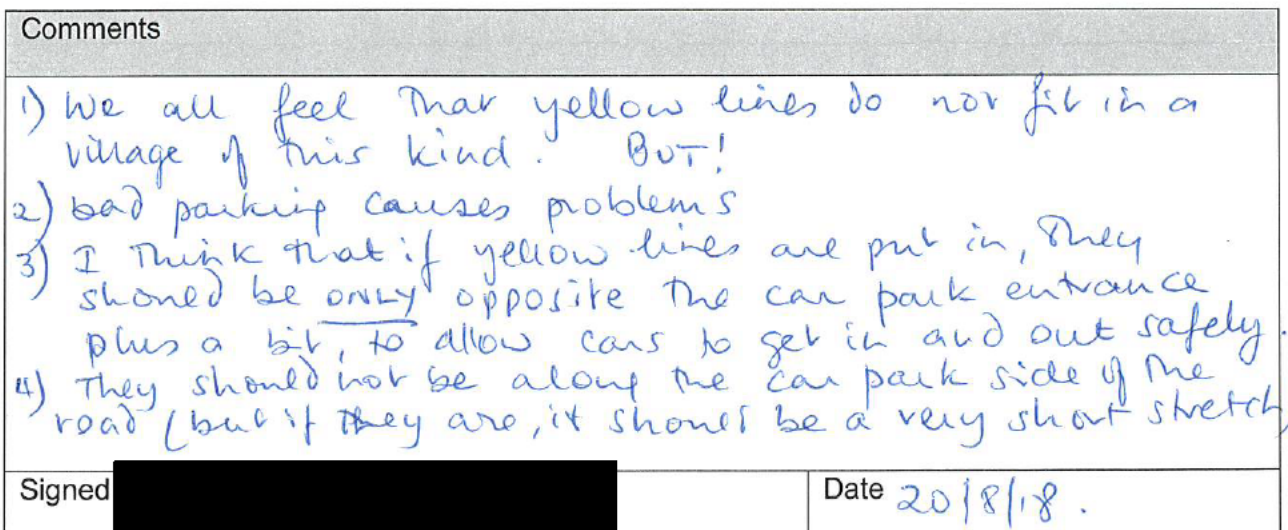 Comments
1) We all feel that yellow lines do not fit in a
village of this kind. BUT!
2) bad parking causes problems
3) I think that if yellow lines are put in, they
should be ONLY opposite the car park entrance
plus a bit, to allow cars to get in and out safely.
4) They should not be along the car park side of the
road (but if they are, it should be a very short stretch)
Signed
Date 20/8/18.